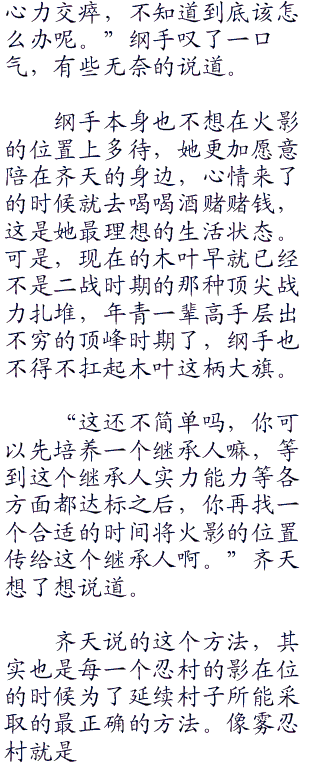 心力交瘁，不知道到底该怎
么办呢。”纲手叹了一口
气，有些无奈的说道。
纲手本身也不想在火影
的位置上多待，她更加愿意
陪在齐天的身边，心情来了
的时候就去喝喝酒赌赌钱，
这是她最理想的生活状态。
可是，现在的木叶早就已经
不是二战时期的那种顶尖战
力扎堆，年青一辈高手层出
不穷的顶峰时期了，纲手也
不得不扛起木叶这柄大旗。
“这还不简单吗，你可
以先培养一个继承人嘛，等
到这个继承人实力能力等各
方面都达标之后，你再找一
个合适的时间将火影的位置
传给这个继承人啊。”齐天
想了想说道。
齐天说的这个方法，其
实也是每一个忍村的影在位
的时候为了延续村子所能采
取的最正确的方法。像雾忍
村就是